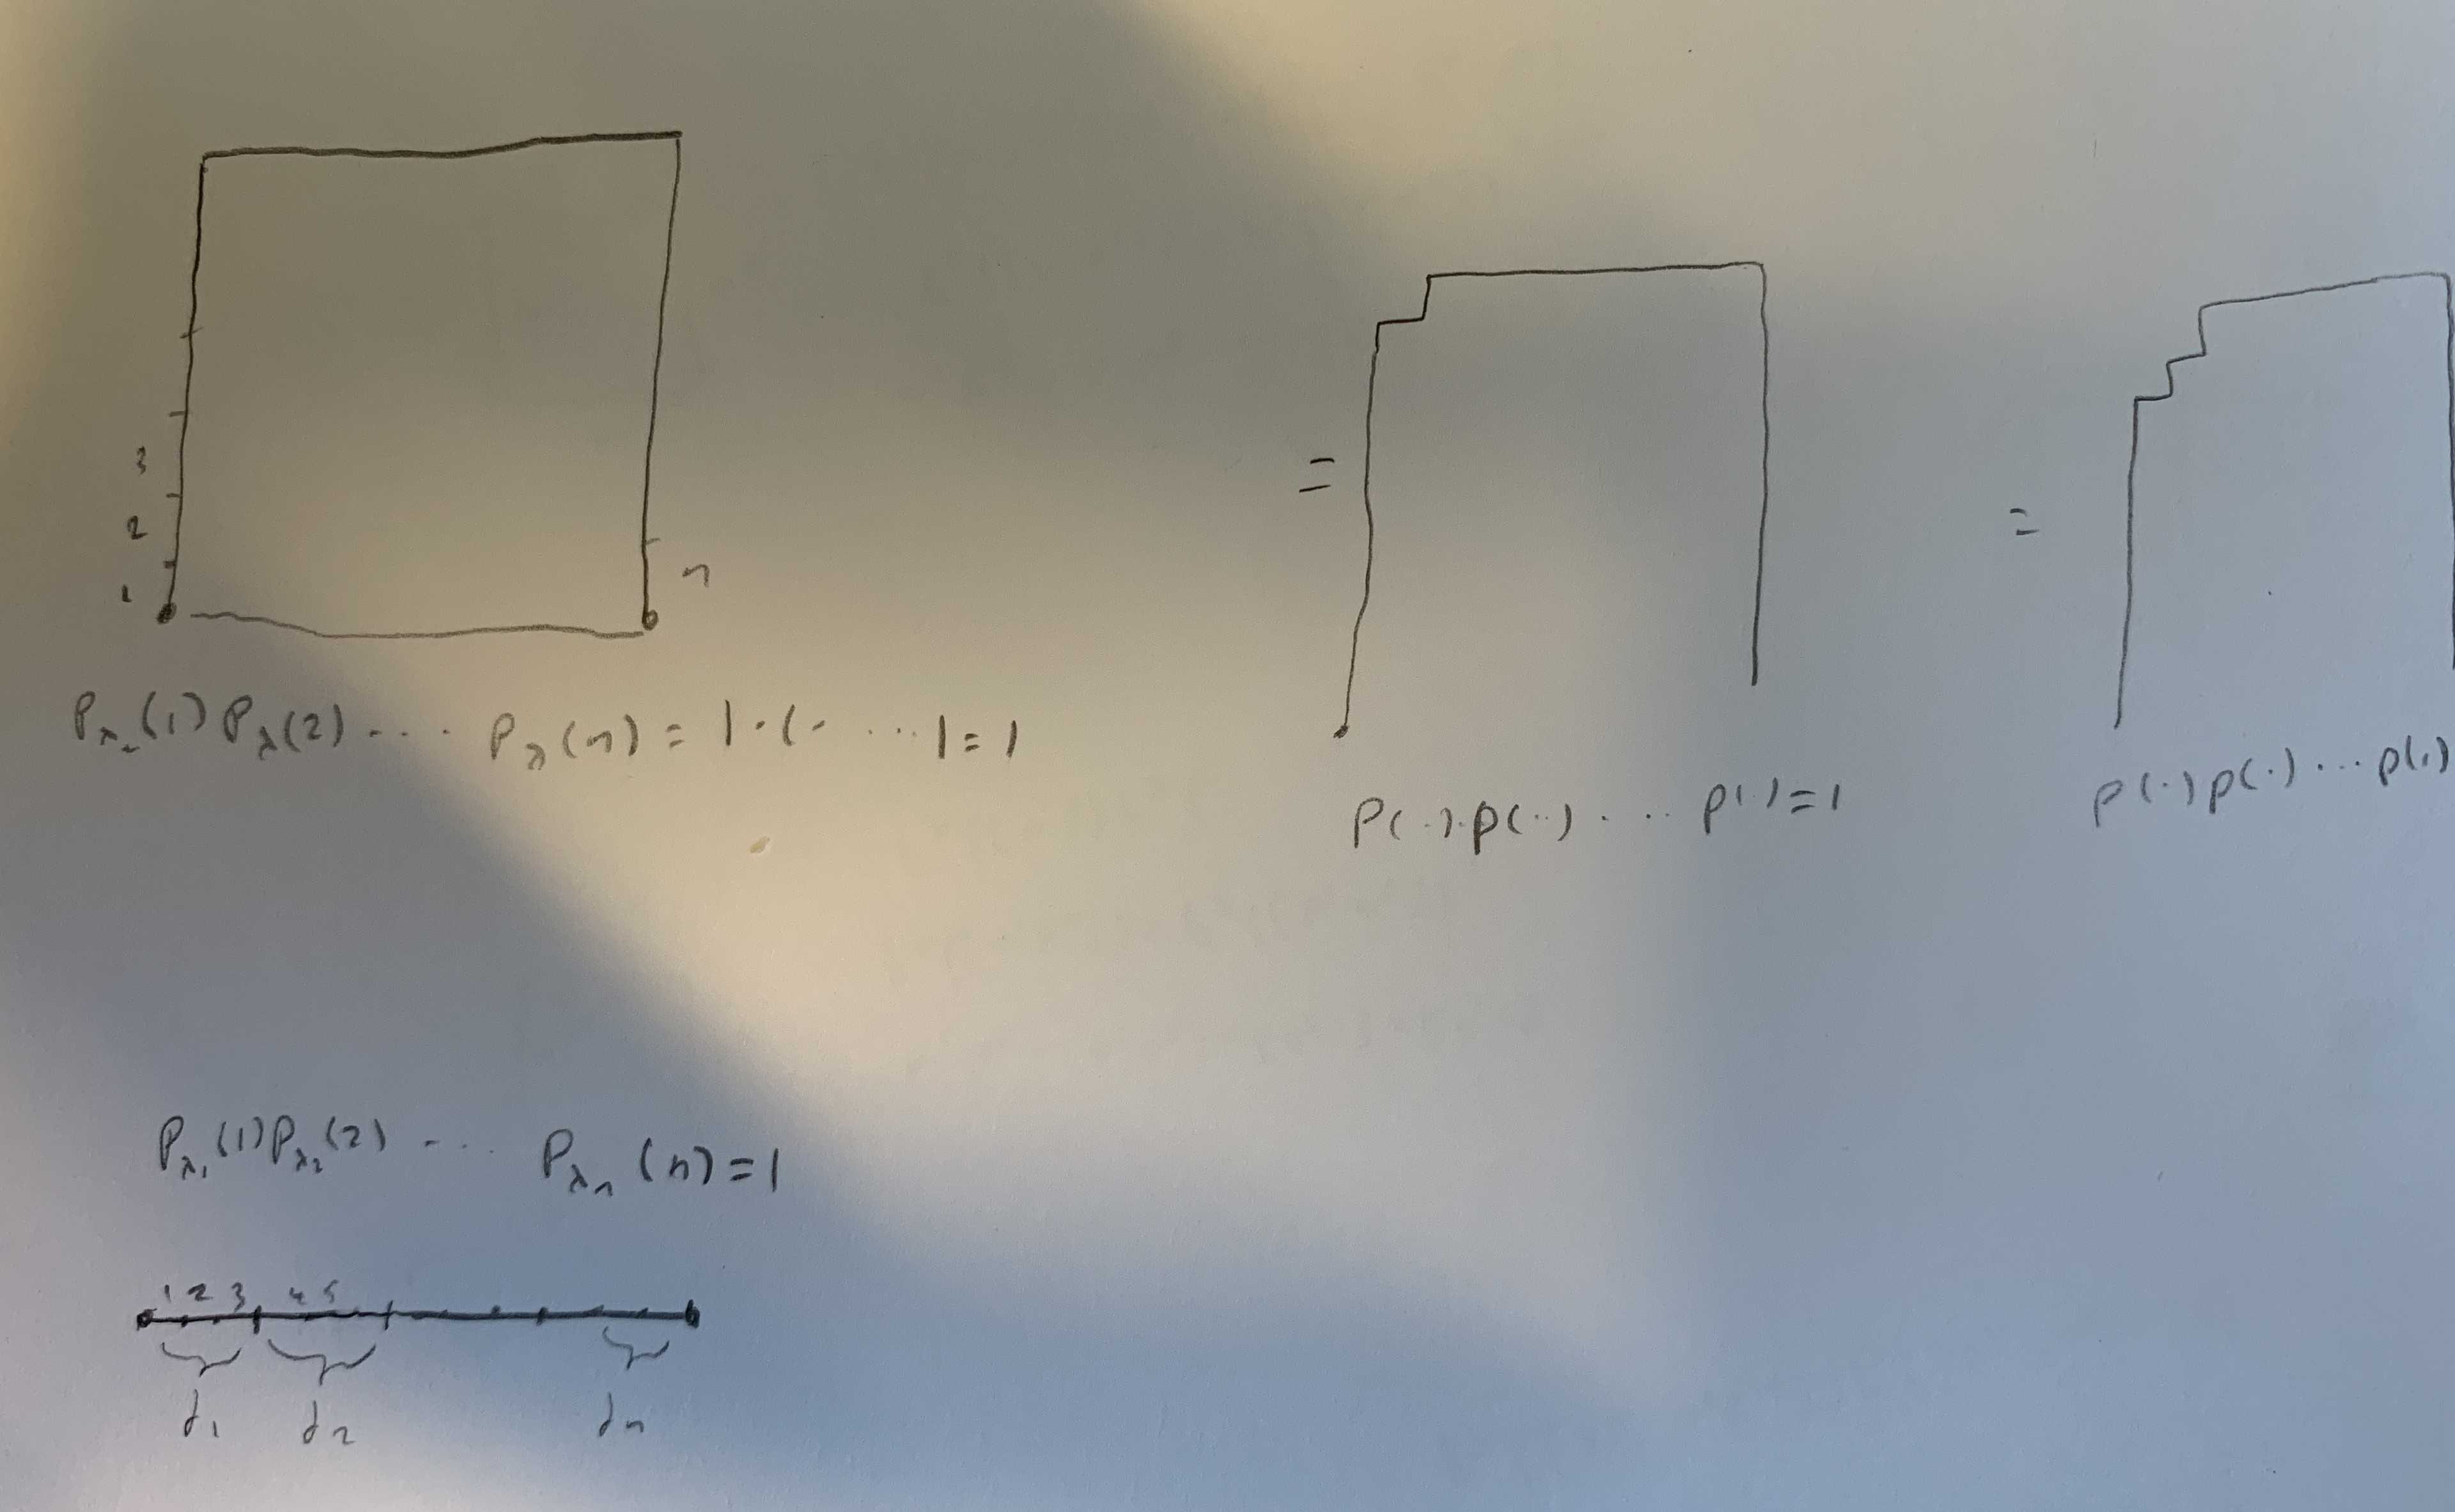 3
2
1
n
P_λ(1) P_λ(2) ... P_λ(n) = 1·1· ... 1 = 1
=
P(·)·P(··) ... P(·) = 1
=
P(·) P(·) ... P(·)
P_λ₁(1) P_λ₂(2) ... P_λₙ(n) = 1
1 2 3 4 5
d₁ d₂ dₙ